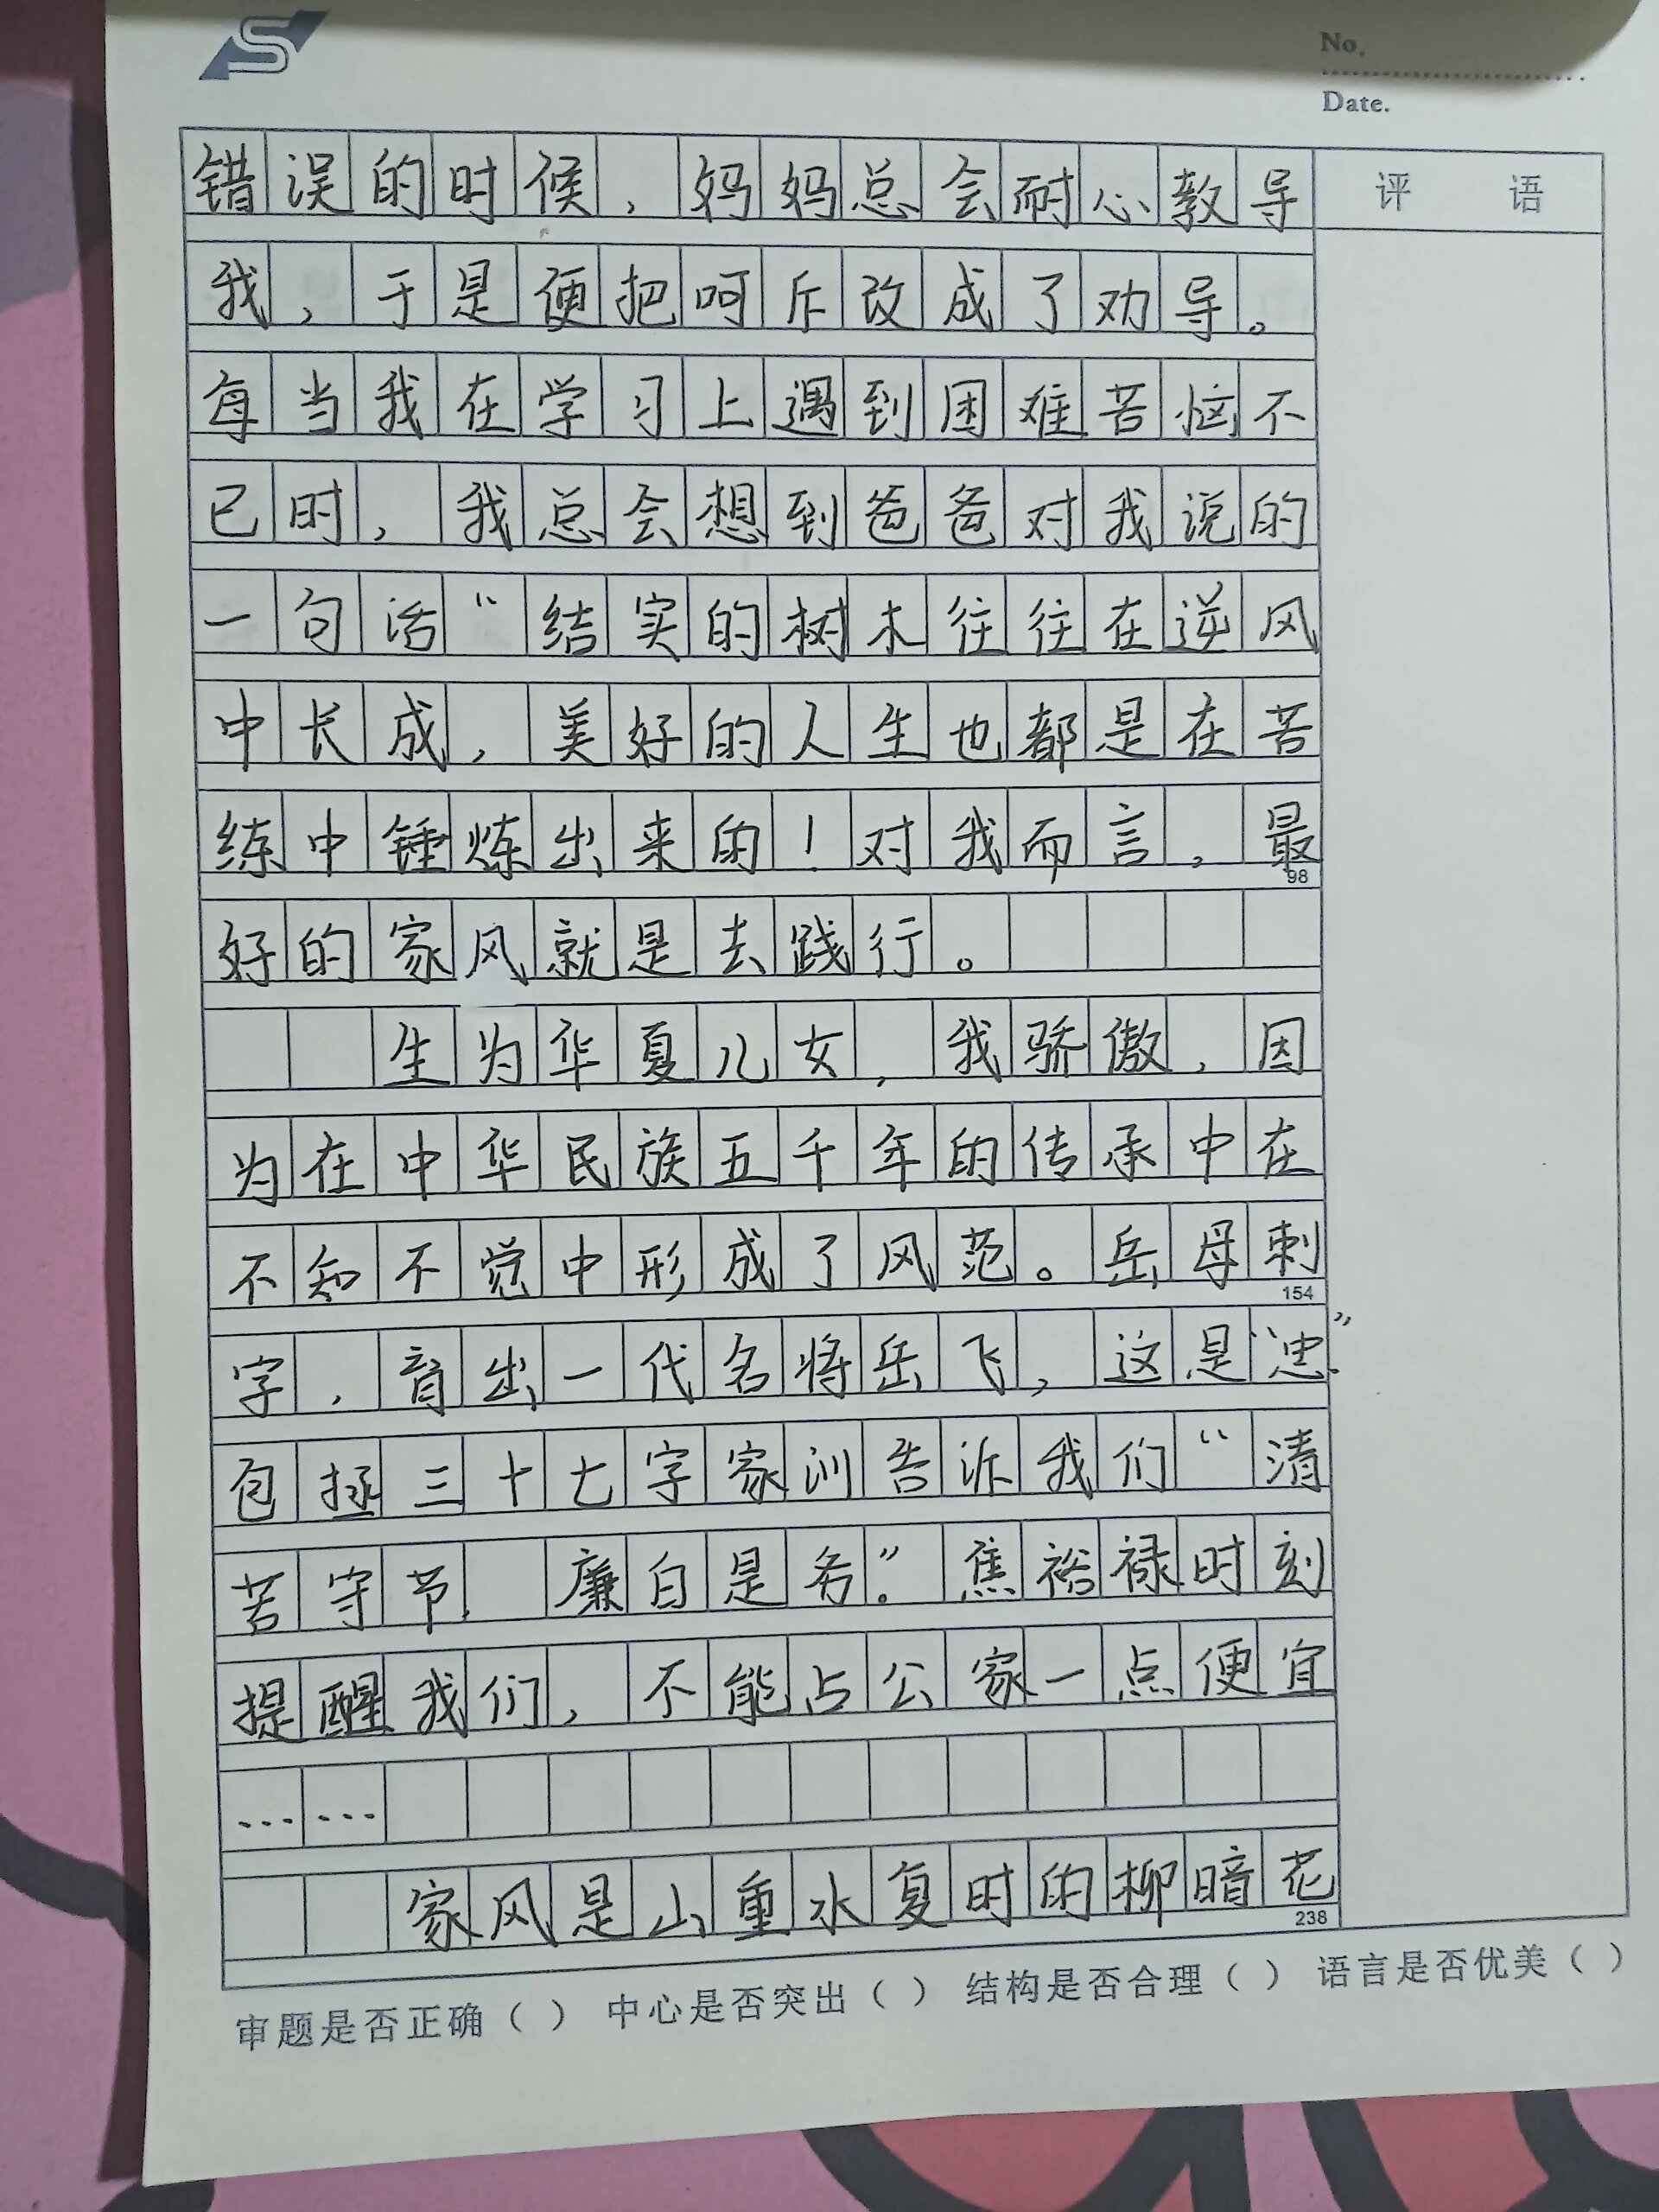 S
No.
Date.
评 语
错误的时候，妈妈总会耐心教导
我，于是便把呵斥改成了劝导。
每当我在学习上遇到困难苦恼不
已时，我总会想到爸爸对我说的
一句话“结实的树木往往在逆风
中长成，美好的人生也都是在苦
练中锤炼出来的！对我而言，最
98
好的家风就是去践行。
生为华夏儿女，我骄傲，因
为在中华民族五千年的传承中在
不知不觉中形成了风范。岳母刺
154
字，育出一代名将岳飞，这是“忠”
包拯三十七字家训告诉我们“清
苦守节，廉白是务”。焦裕禄时刻
提醒我们，不能占公家一点便宜
……
家风是山重水复时的柳暗花
238
审题是否正确（ ） 中心是否突出（ ） 结构是否合理（ ） 语言是否优美（ ）